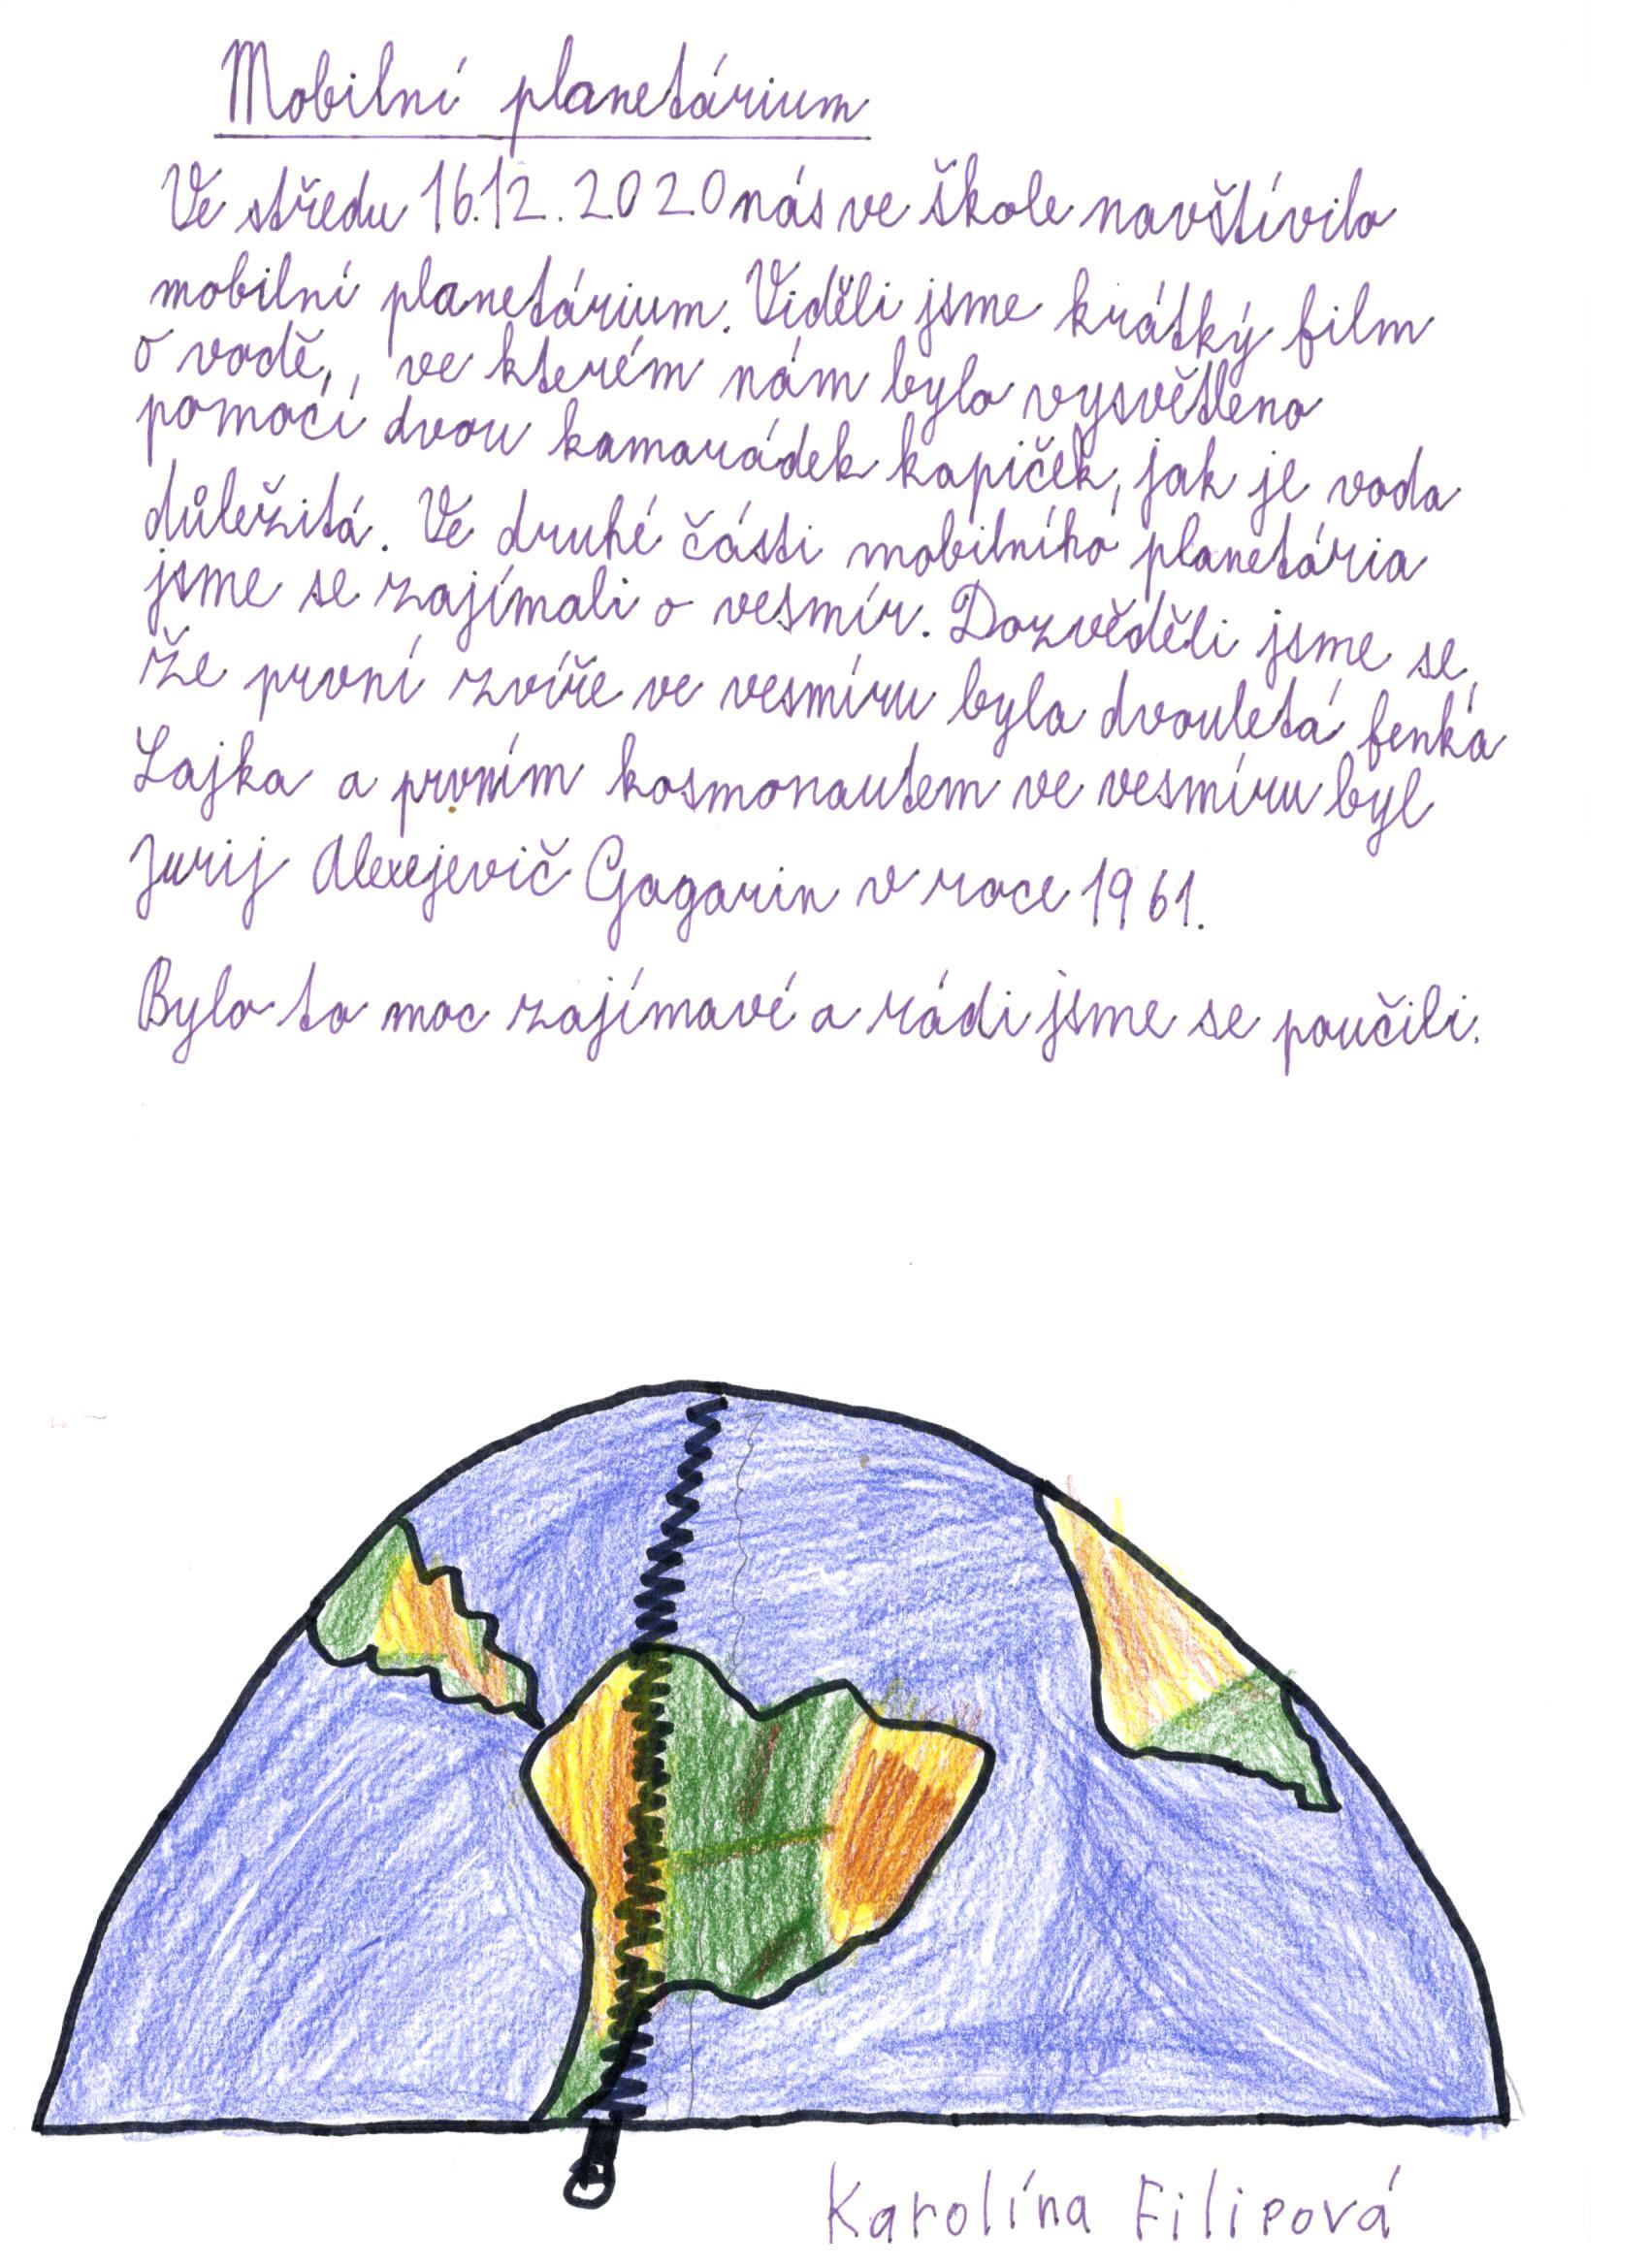 Mobilní planetárium
Ve středu 16.12.2020 nás ve škole navštívilo
mobilní planetárium. Viděli jsme krátký film
o vodě, , ve kterém nám bylo vysvětleno
pomocí dvou kamarádek kapiček, jak je voda
důležitá. Ve druhé části mobilního planetária
jsme se zajímali o vesmír. Dozvěděli jsme se,
že první zvíře ve vesmíru byla dvouletá fenka
Lajka a prvním kosmonautem ve vesmíru byl
Jurij Alexejevič Gagarin v roce 1961.
Bylo to moc zajímavé a rádi jsme se poučili.
Karolína Filipová